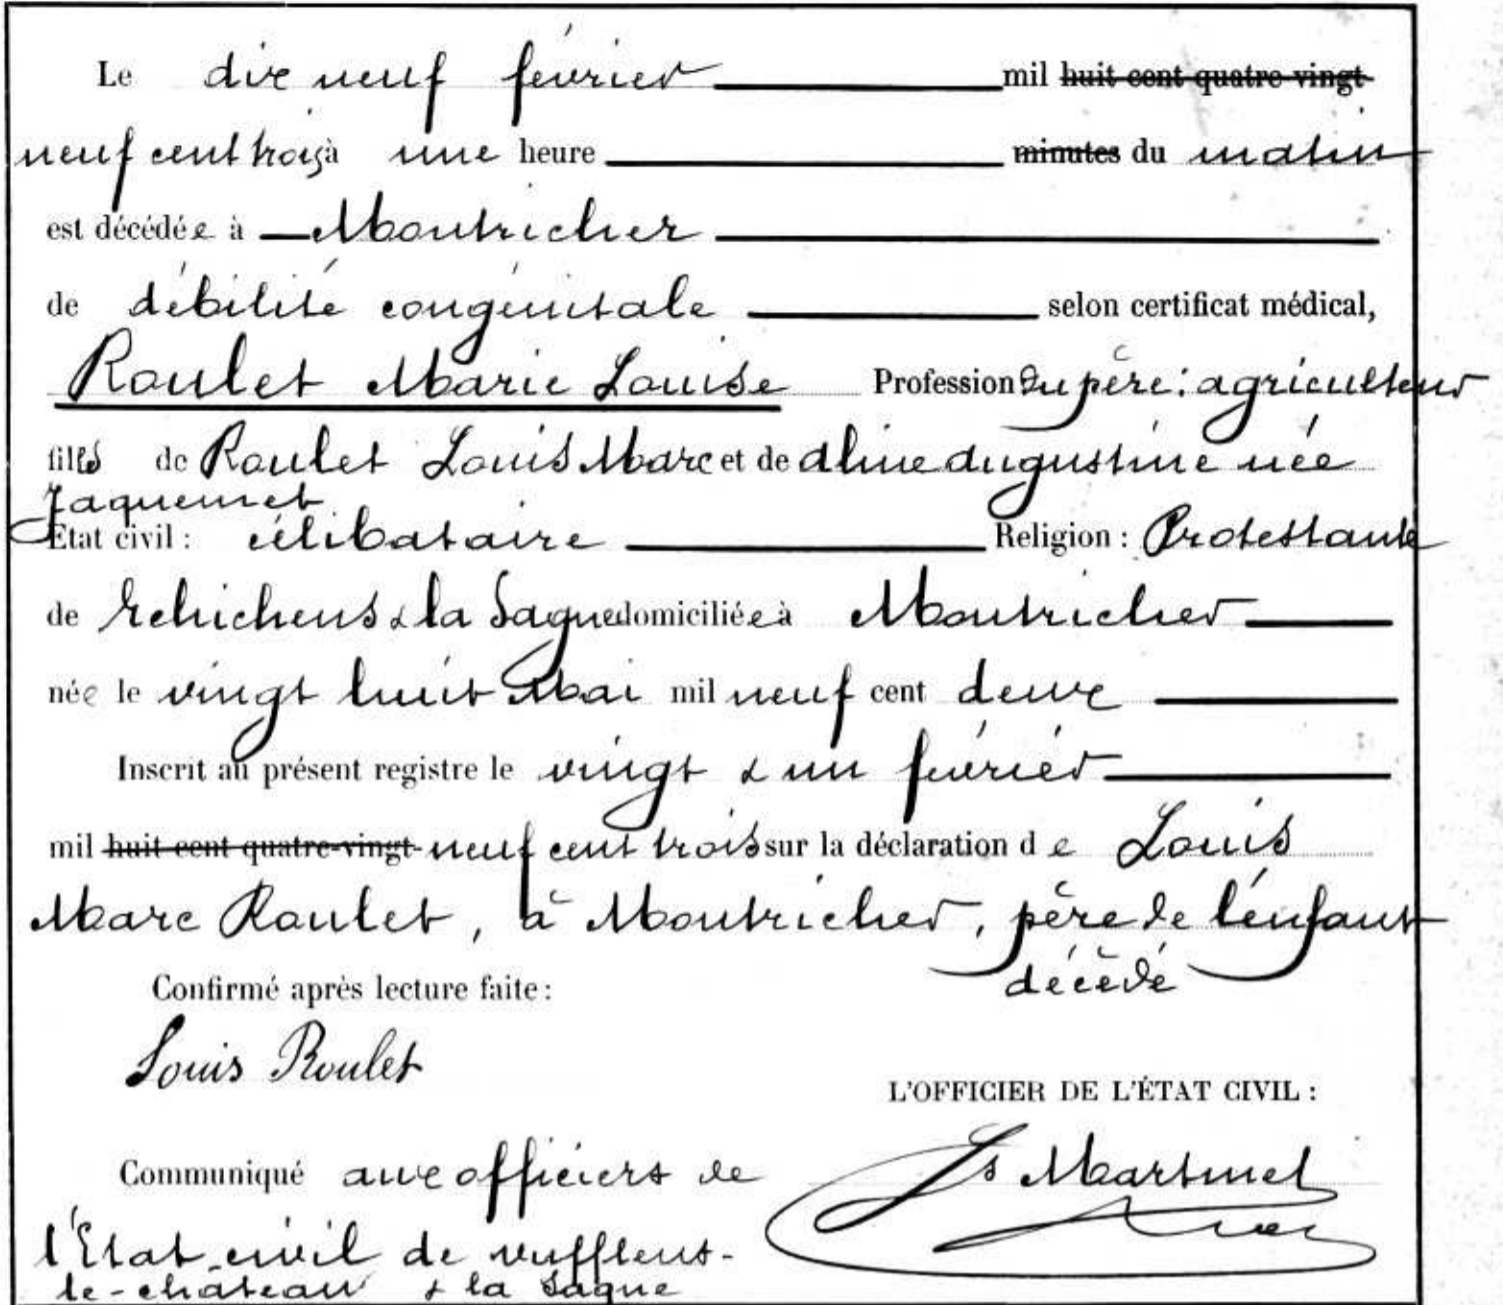 Le dix neuf février mil huit cent quatre-vingt
neuf cent trois à une heure minutes du matin
est décédée à Montricher
de débilité congénitale selon certificat médical,
Roulet Marie Louise Profession du père: agriculteur
fille de Roulet Louis Marc et de Aline Augustine née
Jaquemet
État civil: célibataire Religion: Protestante
de Echichens & la Sagne domiciliée à Montricher
née le vingt huit Mai mil neuf cent deux
Inscrit au présent registre le vingt & un février
mil huit cent quatre-vingt- neuf cent trois sur la déclaration de Louis
Marc Roulet, à Montricher, père de l'enfant
décédé
Confirmé après lecture faite:
Louis Roulet
L'OFFICIER DE L'ÉTAT CIVIL:
Communiqué aux officiers de Ls Martinet
l'Etat civil de Vufflens-
le-château & la Sagne